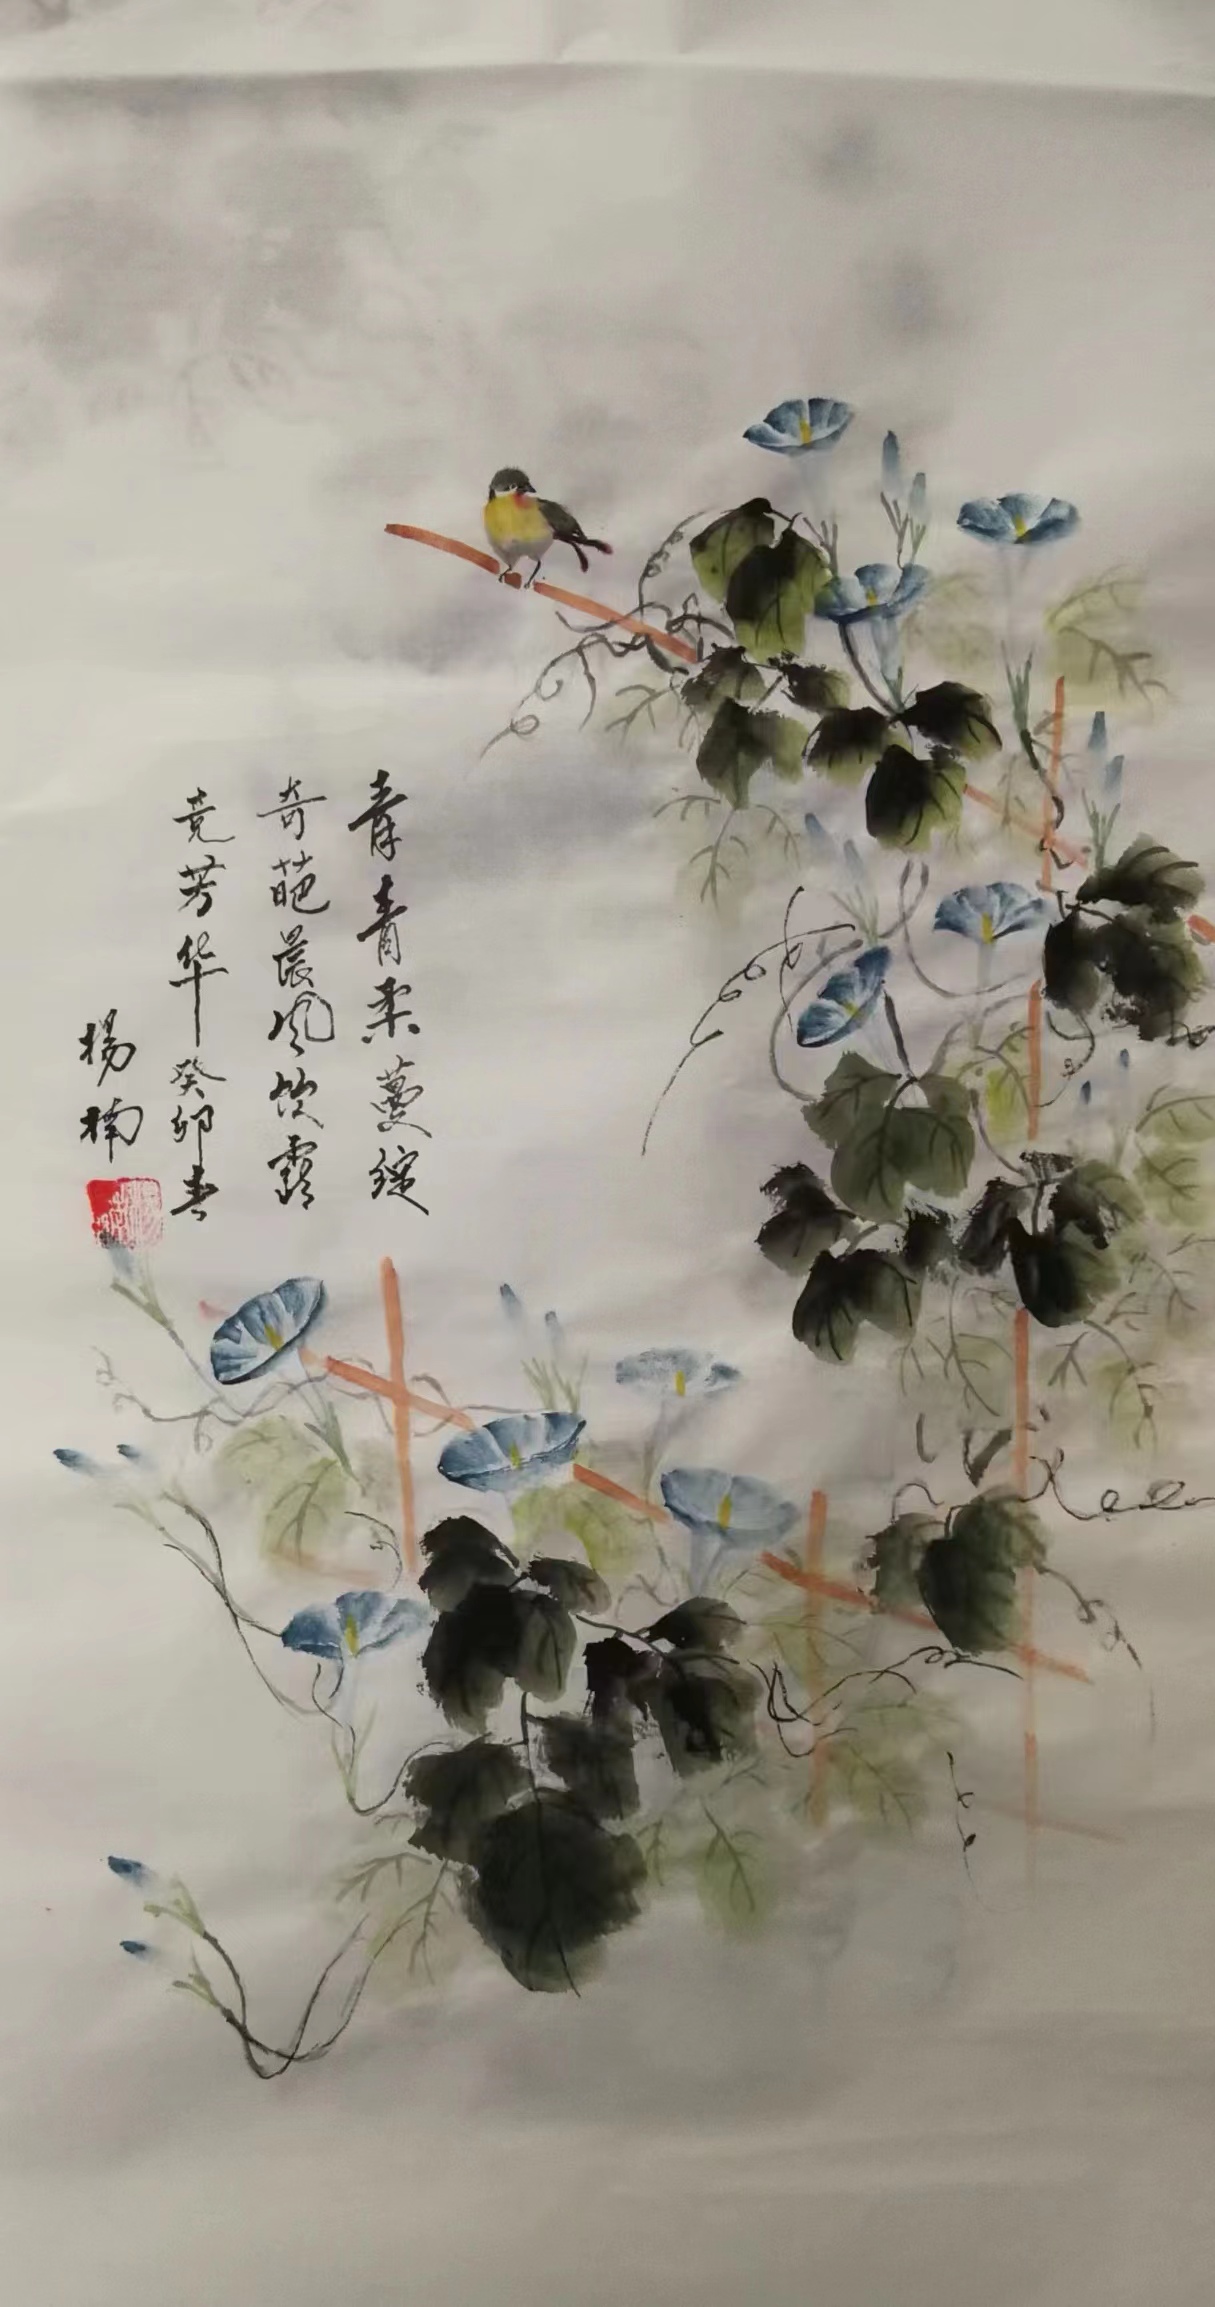 青青柔蔓绽
奇葩晨风饮露
竞芳华癸卯春
杨楠